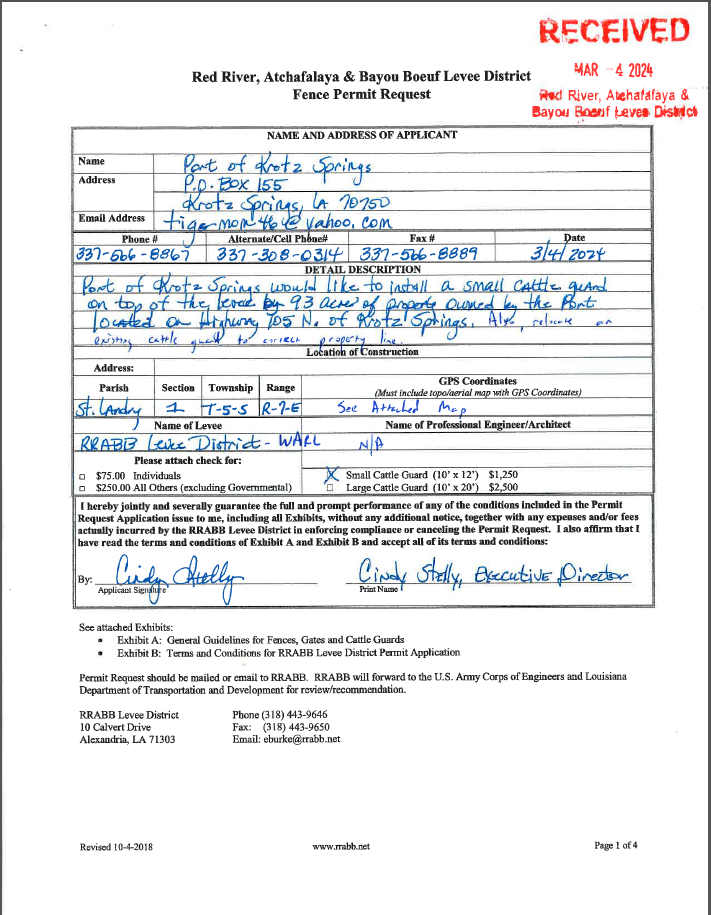 RECEIVED
MAR -4 2024
Red River, Atchafalaya &
Bayou Boeuf Levee District
Red River, Atchafalaya & Bayou Boeuf Levee District
Fence Permit Request
NAME AND ADDRESS OF APPLICANT
Name Port of Krotz Springs
Address P.O. BOX 155
Krotz Springs, LA 70750
Email Address tigermom46@yahoo.com
Phone # Alternate/Cell Phone# Fax # Date
337-566-8867 337-308-0314 337-566-8889 3/4/2024
DETAIL DESCRIPTION
Port of Krotz Springs would like to install a small cattle guard
on top of the levee by 93 acres of property owned by the Port
located on Highway 105 N. of Krotz Springs. Also, relocate an
existing cattle guard to correct property line.
Location of Construction
Address:
Parish Section Township Range GPS Coordinates
(Must include topo/aerial map with GPS Coordinates)
St. Landry 1 T-5-S R-7-E See Attached Map
Name of Levee Name of Professional Engineer/Architect
RRABB Levee District - WARL N/A
Please attach check for:
□ $75.00 Individuals X Small Cattle Guard (10' x 12') $1,250
□ $250.00 All Others (excluding Governmental) □ Large Cattle Guard (10' x 20') $2,500
I hereby jointly and severally guarantee the full and prompt performance of any of the conditions included in the Permit
Request Application issue to me, including all Exhibits, without any additional notice, together with any expenses and/or fees
actually incurred by the RRABB Levee District in enforcing compliance or canceling the Permit Request. I also affirm that I
have read the terms and conditions of Exhibit A and Exhibit B and accept all of its terms and conditions:
By: Cindy Stelly Cindy Stelly, Executive Director
Applicant Signature Print Name
See attached Exhibits:
• Exhibit A: General Guidelines for Fences, Gates and Cattle Guards
• Exhibit B: Terms and Conditions for RRABB Levee District Permit Application
Permit Request should be mailed or email to RRABB. RRABB will forward to the U.S. Army Corps of Engineers and Louisiana
Department of Transportation and Development for review/recommendation.
RRABB Levee District Phone (318) 443-9646
10 Calvert Drive Fax: (318) 443-9650
Alexandria, LA 71303 Email: eburke@rrabb.net
Revised 10-4-2018 www.rrabb.net Page 1 of 4